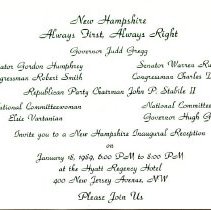 New Hampshire
Always First, Always Right
Governor Judd Gregg
ator Gordon Humphrey Senator Warren Ru
ngressman Robert Smith Congressman Charles D
Republican Party Chairman John P. Stabile II
National Committeewoman National Committee
Elsie Vartanian Governor Hugh G
Invite you to a New Hampshire Inaugural Reception
on
January 18, 1989, 6:00 P.M. to 8:00 P.M.
at the Hyatt Regency Hotel
400 New Jersey Avenue, NW
Please Join Us